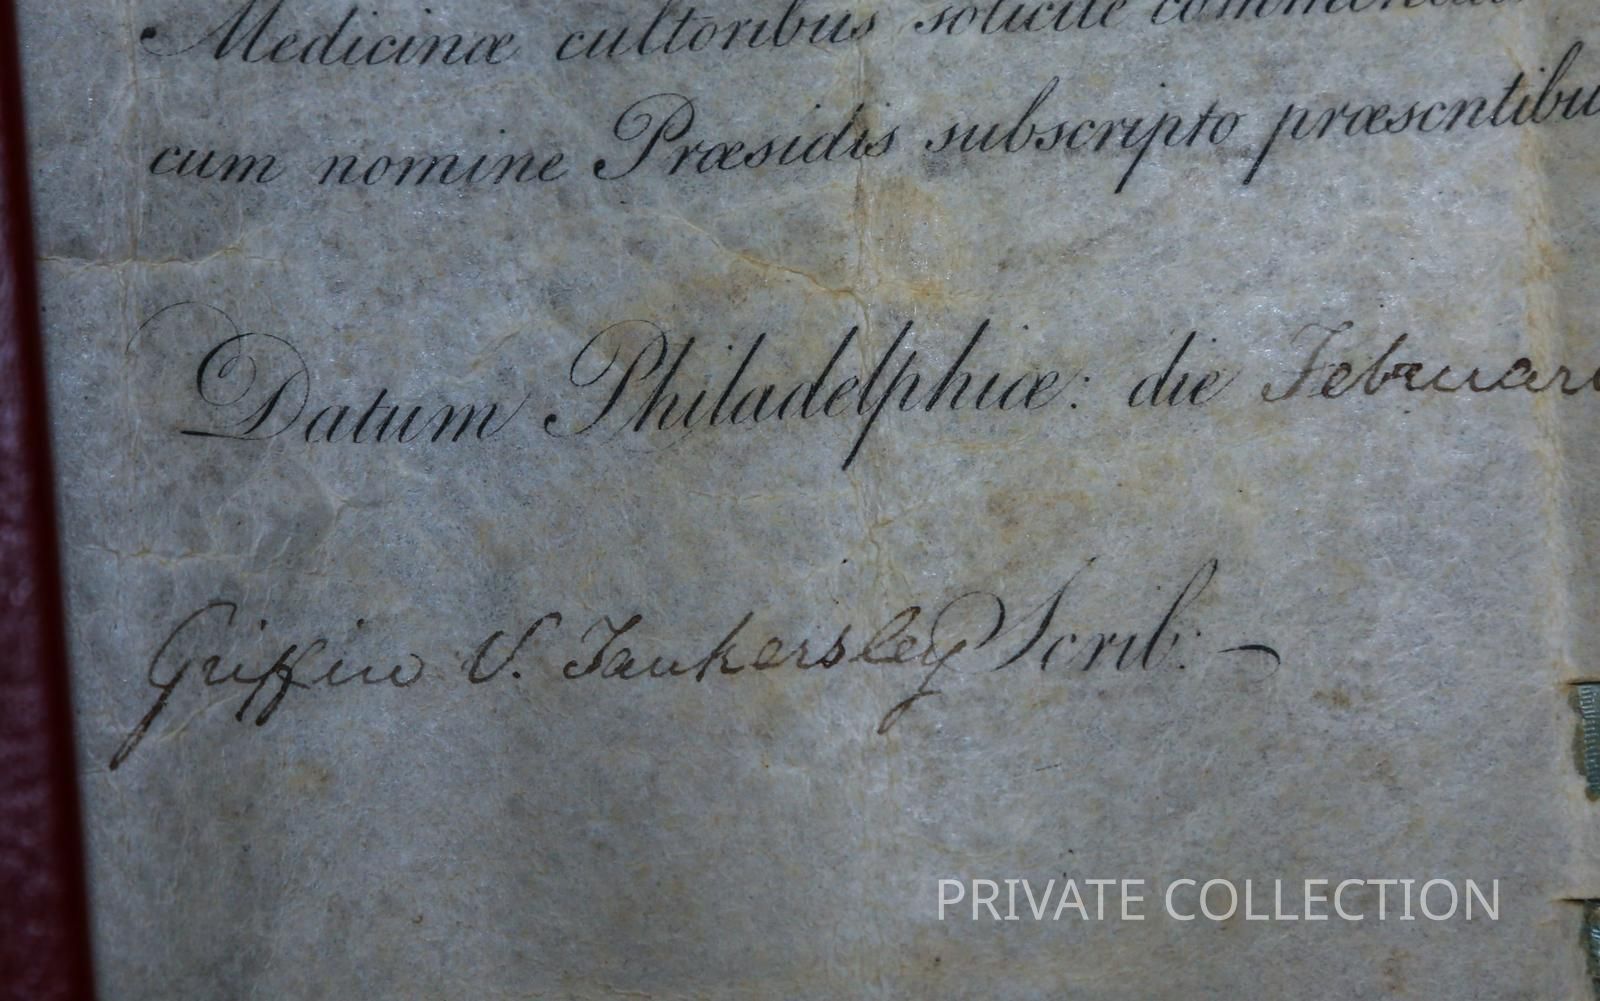 Medicinæ cultoribus solicite
cum nomine Præsidis subscripto præsentibu
Datum Philadelphiæ: die Februari
Griffin V. Tankersley Scrib: —
PRIVATE COLLECTION